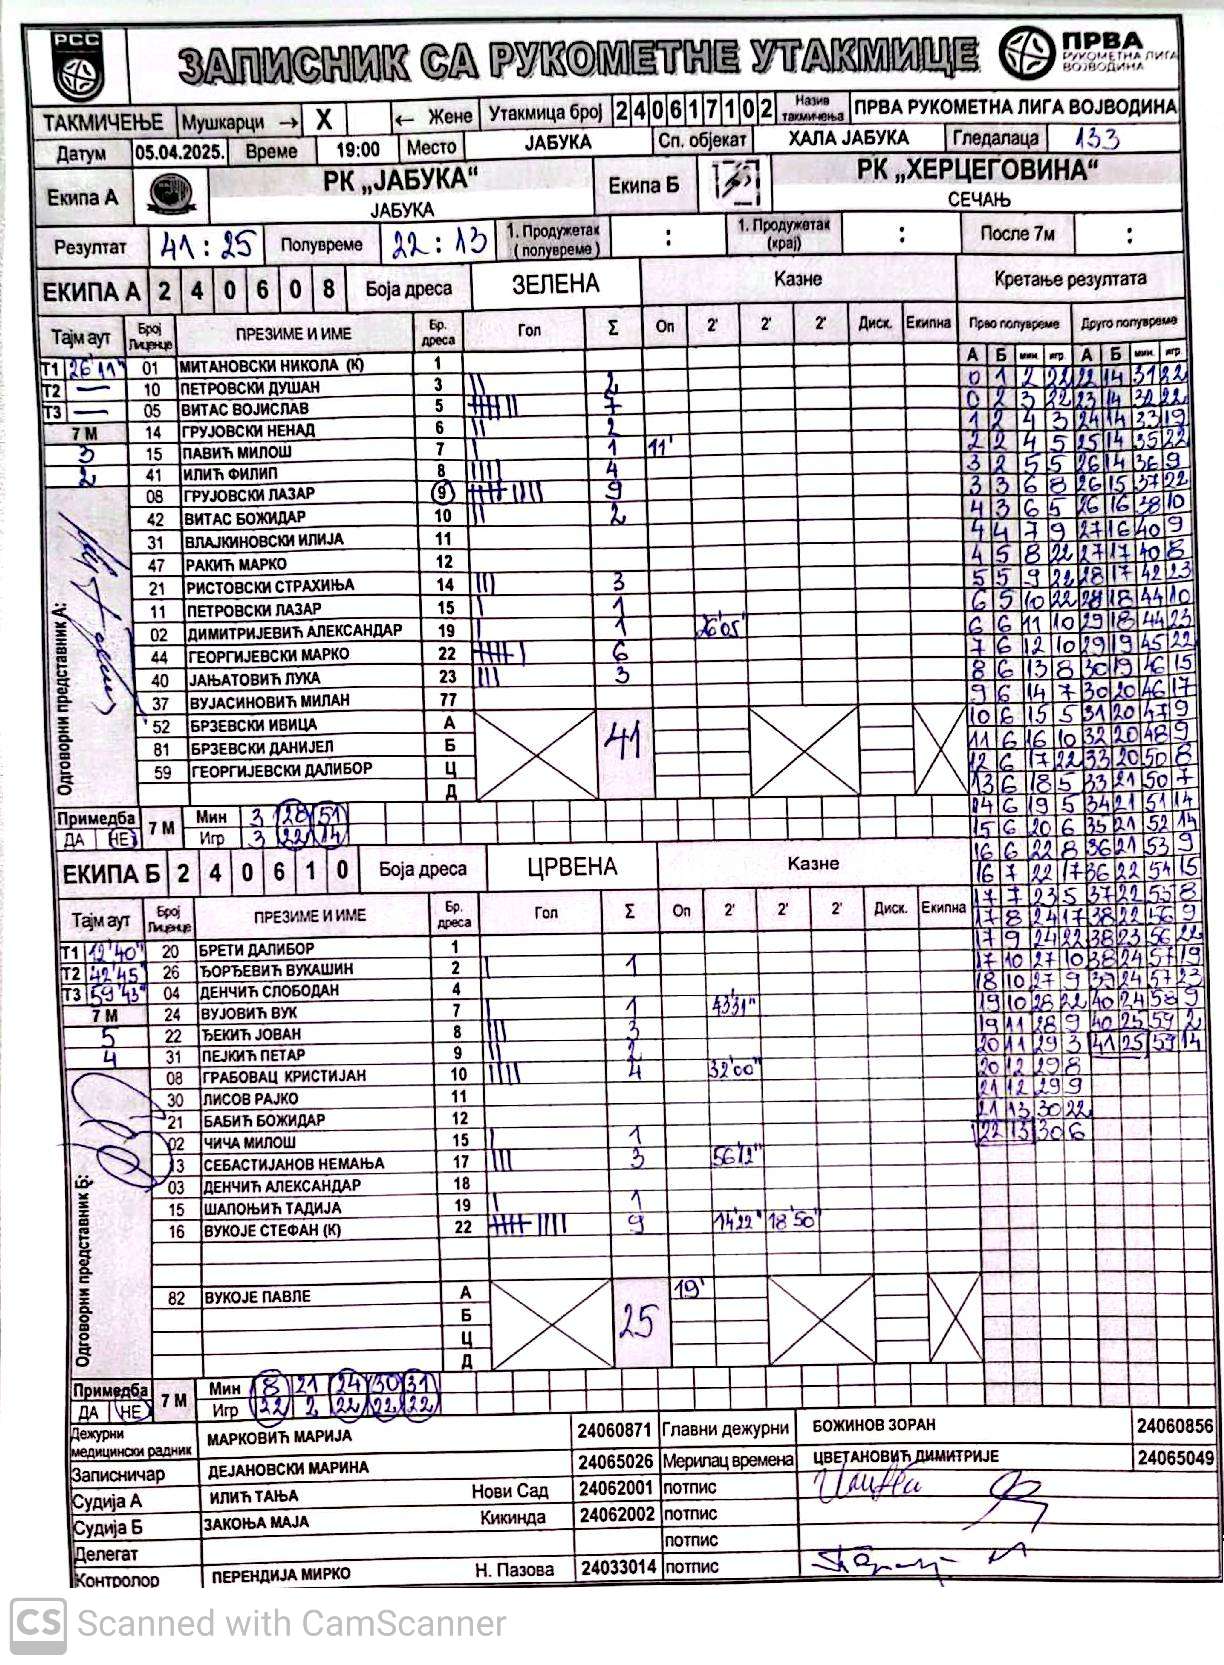 РСС
ЗАПИСНИК СА РУКОМЕТНЕ УТАКМИЦЕ
ПРВА
РУКОМЕТНА ЛИГА
ВОЈВОДИНА
ТАКМИЧЕЊЕ Мушкарци → X ← Жене Утакмица број 240617102 Назив такмичења ПРВА РУКОМЕТНА ЛИГА ВОЈВОДИНА
Датум 05.04.2025. Време 19:00 Место ЈАБУКА Сп. објекат ХАЛА ЈАБУКА Гледалаца 133
Екипа А РК „ЈАБУКА“ Екипа Б РК „ХЕРЦЕГОВИНА“
ЈАБУКА СЕЧАЊ
Резултат 41 : 25 Полувреме 22 : 13 1. Продужетак (полувреме) : 1. Продужетак (крај) : После 7м :
ЕКИПА А 240608 Боја дреса ЗЕЛЕНА Казне Кретање резултата
Тајм аут Број Лиценце ПРЕЗИМЕ И ИМЕ Бр. дреса Гол Σ Оп 2' 2' 2' Диск. Екипна Прво полувреме Друго полувреме
А Б мин. игр А Б мин. игр.
Т1 26'11" 01 МИТАНОВСКИ НИКОЛА (К) 1
Т2 — 10 ПЕТРОВСКИ ДУШАН 3 2
Т3 — 05 ВИТАС ВОЈИСЛАВ 5 7
7 М 14 ГРУЈОВСКИ НЕНАД 6 2
3 15 ПАВИЋ МИЛОШ 7 1 11'
2 41 ИЛИЋ ФИЛИП 8 4
08 ГРУЈОВСКИ ЛАЗАР 9 9
42 ВИТАС БОЖИДАР 10 2
31 ВЛАЈКИНОВСКИ ИЛИЈА 11
47 РАКИЋ МАРКО 12
21 РИСТОВСКИ СТРАХИЊА 14 3
11 ПЕТРОВСКИ ЛАЗАР 15 1
02 ДИМИТРИЈЕВИЋ АЛЕКСАНДАР 19 1 26'05"
44 ГЕОРГИЈЕВСКИ МАРКО 22 6
40 ЈАЊАТОВИЋ ЛУКА 23 3
37 ВУЈАСИНОВИЋ МИЛАН 77
52 БРЗЕВСКИ ИВИЦА А
81 БРЗЕВСКИ ДАНИЈЕЛ Б 41
59 ГЕОРГИЈЕВСКИ ДАЛИБОР Ц
Д
Одговорни представник А:
Примедба ДА НЕ 7 М Мин 3 28 51
Игр 3 22 14
0 1 2 22 22 14 31 22
0 2 3 22 23 14 32 22
1 2 4 3 24 14 33 19
2 2 4 5 25 14 35 22
3 2 5 5 26 14 36 9
3 3 6 8 26 15 37 22
4 3 6 5 26 16 38 10
4 4 7 9 27 16 40 9
4 5 8 22 27 17 40 8
5 5 9 22 28 17 42 23
6 5 10 22 28 18 44 10
6 6 11 10 29 18 44 23
7 6 12 10 29 19 45 22
8 6 13 8 30 19 46 15
9 6 14 7 30 20 46 17
10 6 15 5 31 20 47 9
11 6 16 10 32 20 48 9
12 6 17 22 33 20 50 8
13 6 18 5 33 21 50 7
14 6 19 5 34 21 51 14
15 6 20 6 35 21 52 14
16 6 22 8 36 21 53 9
16 7 22 17 36 22 54 15
17 7 23 5 37 22 55 8
17 8 24 17 38 22 56 9
17 9 24 22 38 23 56 22
17 10 27 10 38 24 57 19
18 10 27 9 39 24 57 23
19 10 28 22 40 24 58 9
19 11 28 9 40 25 59 2
20 11 29 3 41 25 59 14
20 12 29 8
21 12 29 9
21 13 30 22
22 13 30 6
ЕКИПА Б 240610 Боја дреса ЦРВЕНА Казне
Тајм аут Број Лиценце ПРЕЗИМЕ И ИМЕ Бр. дреса Гол Σ Оп 2' 2' 2' Диск. Екипна
Т1 12'40" 20 БРЕТИ ДАЛИБОР 1
Т2 42'45" 26 ЂОРЂЕВИЋ ВУКАШИН 2 1
Т3 59'43" 04 ДЕНЧИЋ СЛОБОДАН 4
7 М 24 ВУЈОВИЋ ВУК 7 1 43'31"
5 22 ЂЕКИЋ ЈОВАН 8 3
4 31 ПЕЈКИЋ ПЕТАР 9 2
08 ГРАБОВАЦ КРИСТИЈАН 10 4 32'00"
30 ЛИСОВ РАЈКО 11
21 БАБИЋ БОЖИДАР 12
02 ЧИЧА МИЛОШ 15 1
13 СЕБАСТИЈАНОВ НЕМАЊА 17 3 56'12"
03 ДЕНЧИЋ АЛЕКСАНДАР 18
15 ШАПОЊИЋ ТАДИЈА 19 1
16 ВУКОЈЕ СТЕФАН (К) 22 9 14'22" 18'50"
82 ВУКОЈЕ ПАВЛЕ А 19'
Б 25
Ц
Д
Одговорни представник Б:
Примедба ДА НЕ 7 М Мин 8 21 24 30 31
Игр 22 2 22 22 22
Дежурни медицински радник МАРКОВИЋ МАРИЈА 24060871 Главни дежурни БОЖИНОВ ЗОРАН 24060856
Записничар ДЕЈАНОВСКИ МАРИНА 24065026 Мерилац времена ЦВЕТАНОВИЋ ДИМИТРИЈЕ 24065049
Судија А ИЛИЋ ТАЊА Нови Сад 24062001 потпис
Судија Б ЗАКОЊА МАЈА Кикинда 24062002 потпис
Делегат потпис
Контролор ПЕРЕНДИЈА МИРКО Н. Пазова 24033014 потпис
CS Scanned with CamScanner